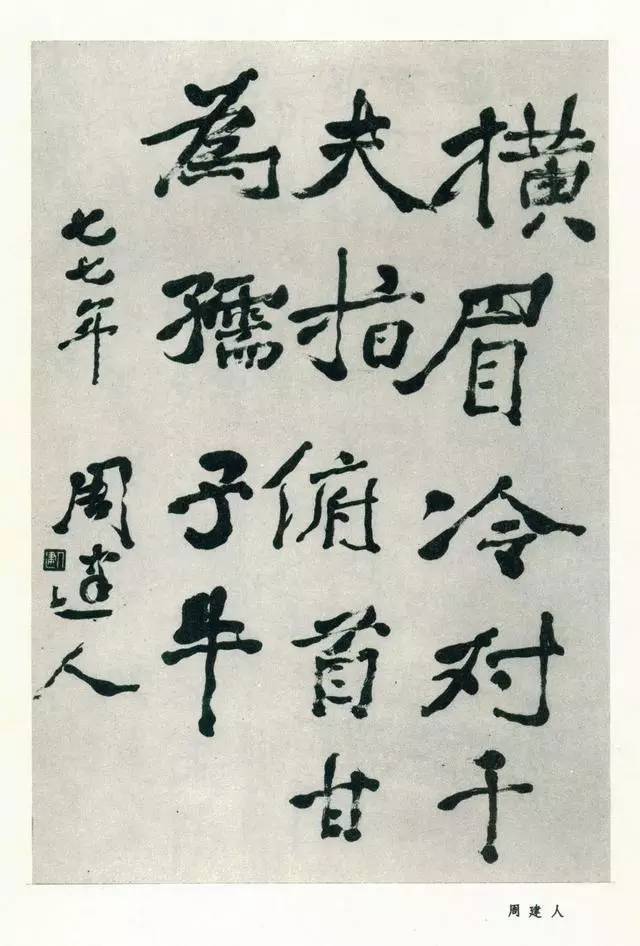 横眉冷对千
夫指俯首甘
為孺子牛
七七年
周建人
建人
周建人